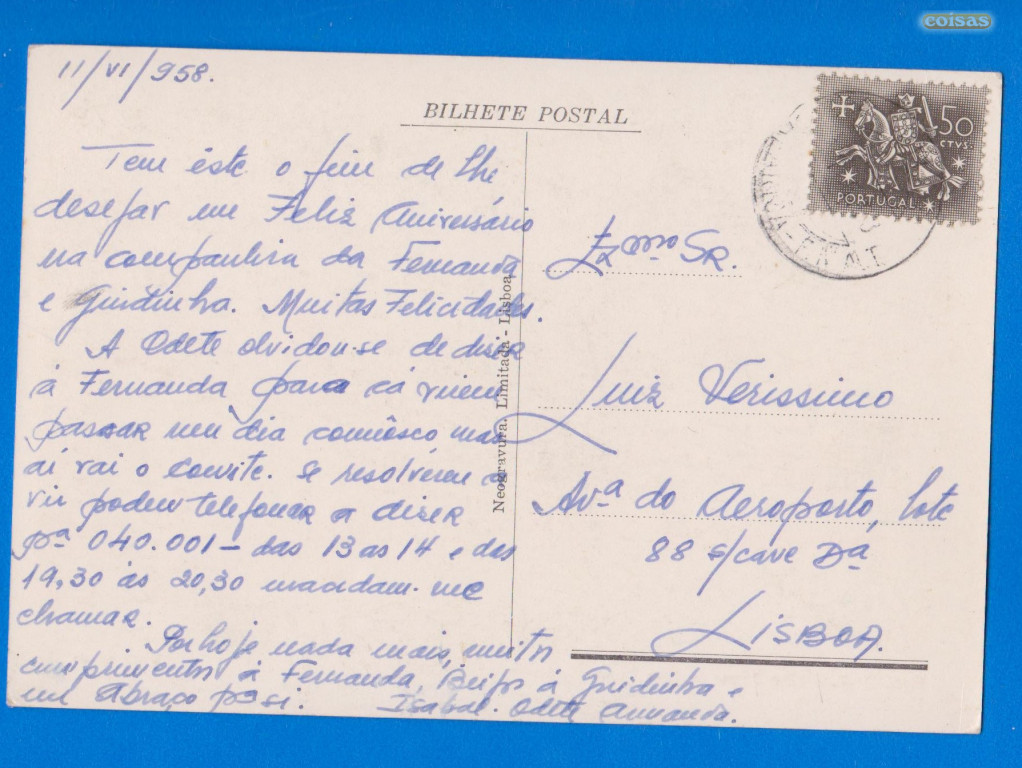 coisas
11/VI/958.
BILHETE POSTAL
50
CTVS.
PORTUGAL
Tem êste o fim de lhe
desejar um Feliz Aniversário
na companhia da Fernanda
e Guidinha. Muitas Felicidades.
A Odete olvidou-se de dizer
á Fernanda para cá virem
passar um dia comnosco mas
aí vai o convite. Se resolverem a
vir podem telefonar a dizer
pª 040.001 - das 13 as 14 e das
19,30 ás 20,30 mandam-me
chamar.
Por hoje nada mais, muitos
cumprimentos á Fernanda, Beijos á Guidinha e
um Abraço p3 si. Isabal. Odete Armanda.
Neogravura, Limitada - Lisboa
Exmo. SR.
Luiz Verissimo
Avª do Aeroporto, lote
88 s/cave Dª
LISBOA.